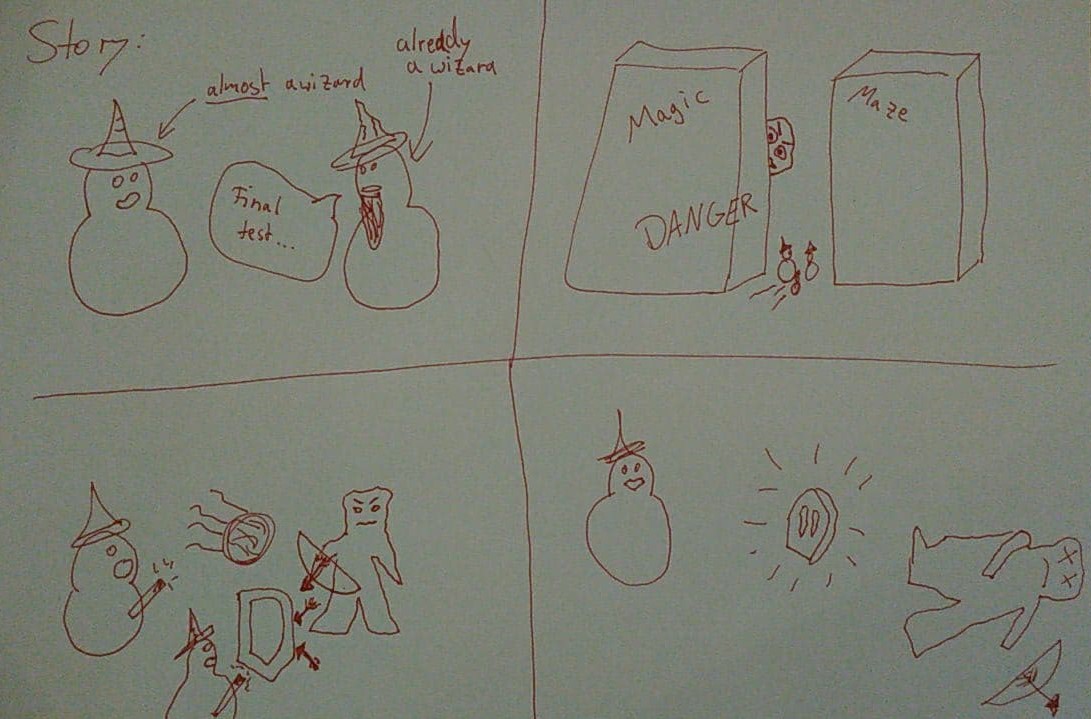 Story:
almost a wizard
already
a wizard
Final
test...
Magic
DANGER
Maze